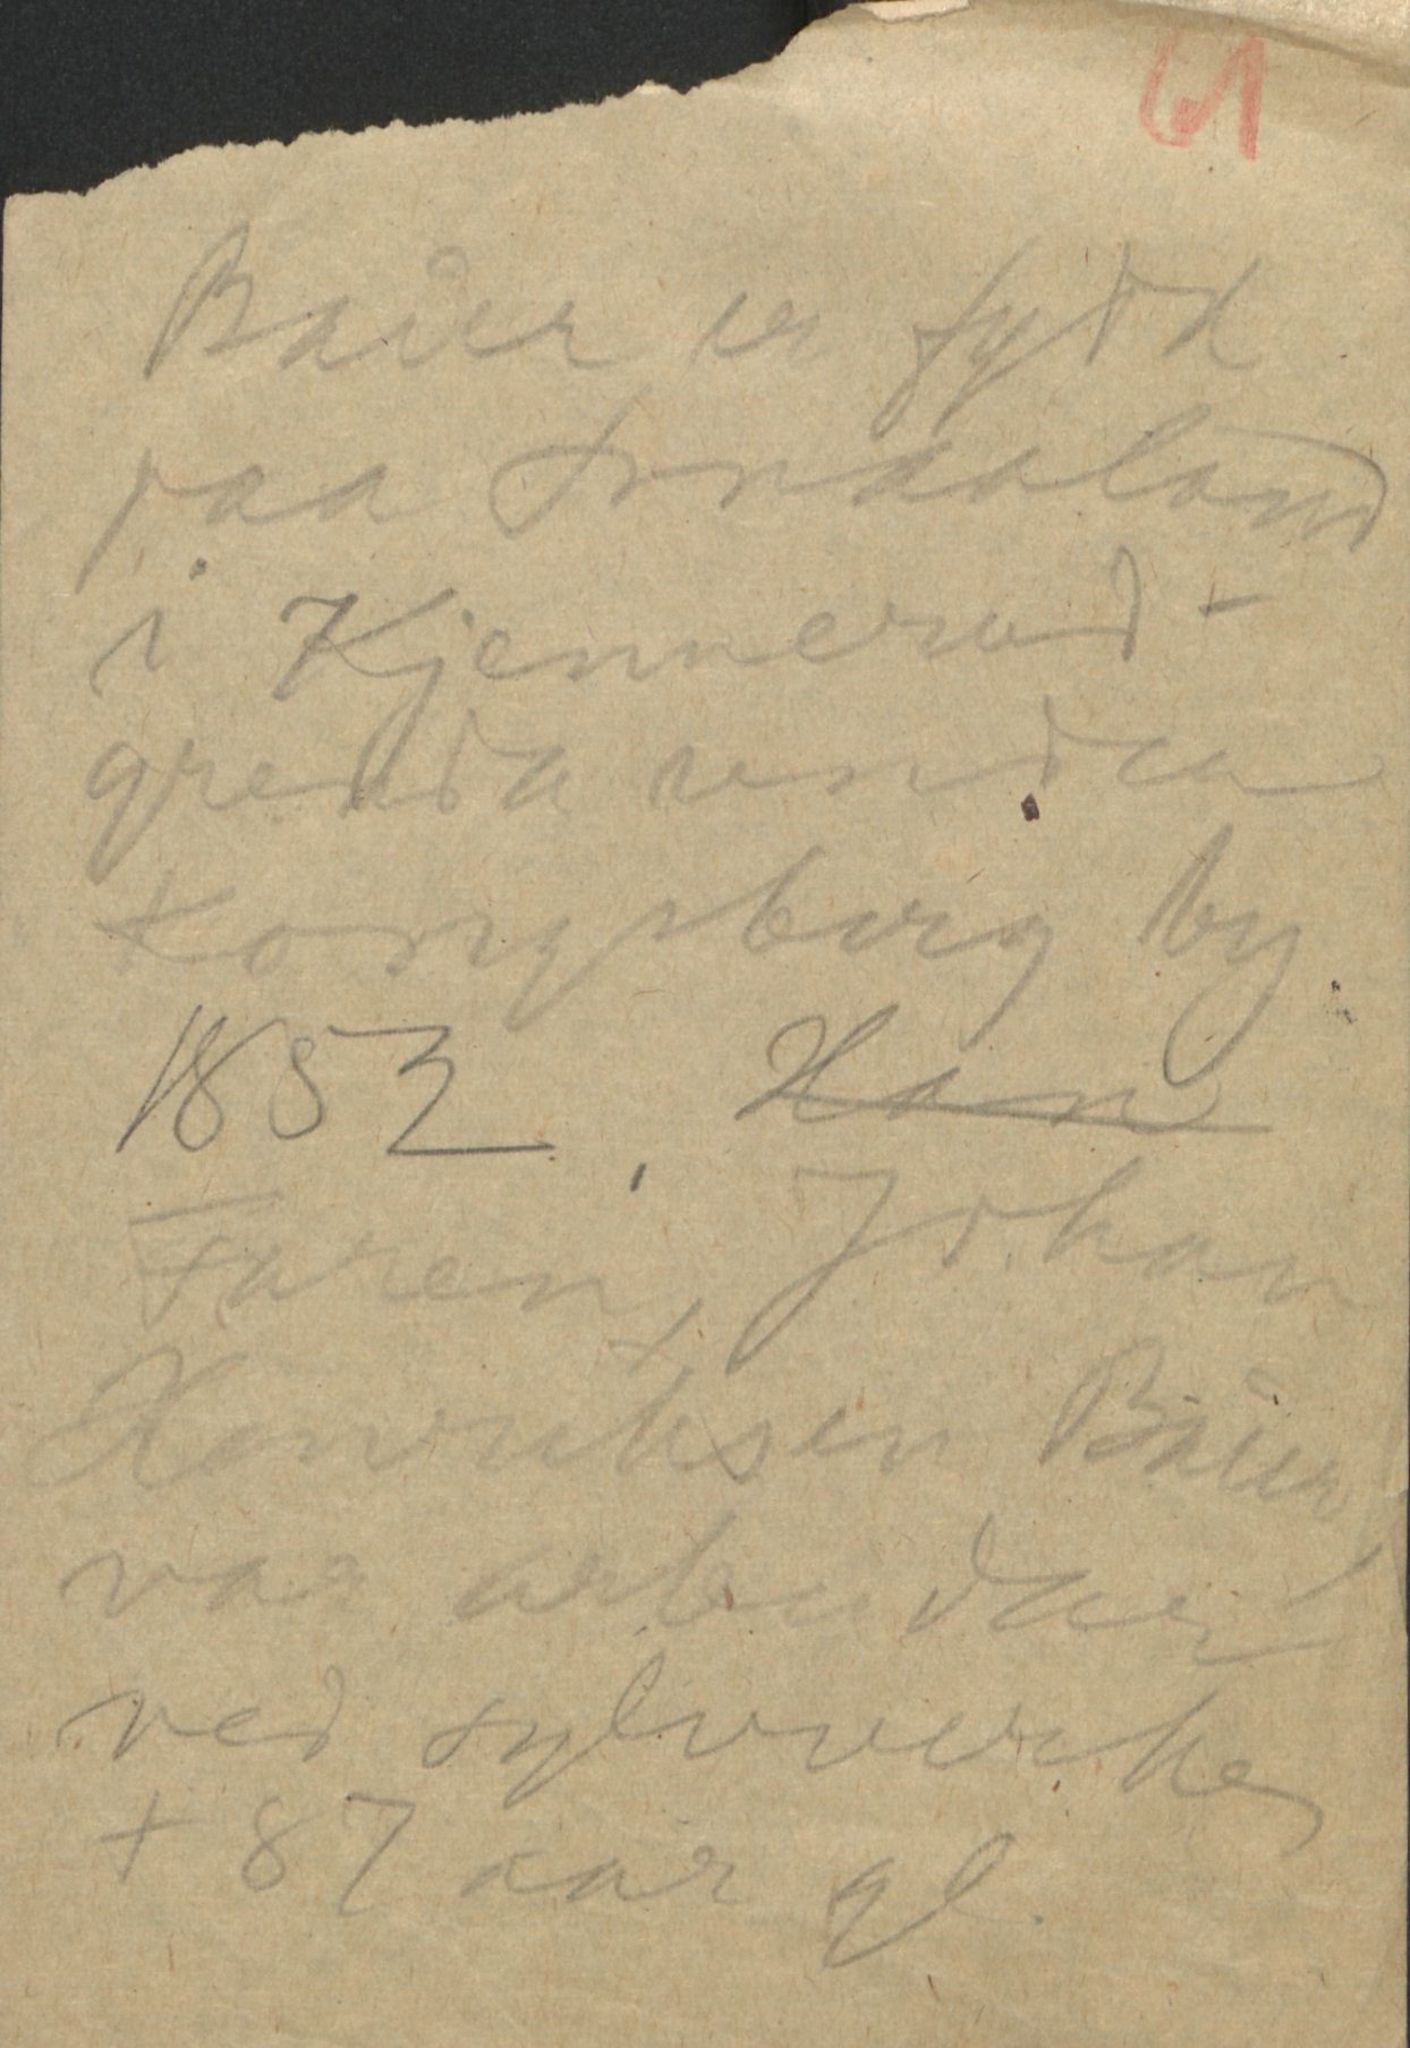 61
Baier er fødd
paa Smaaland
i Kjennerud-
grenda unda
Kongsberg by
1852. Han
Faren, Johan
Henriksen Baier
var arbeidar
ved sylvverke,
+ 87 aar gl.